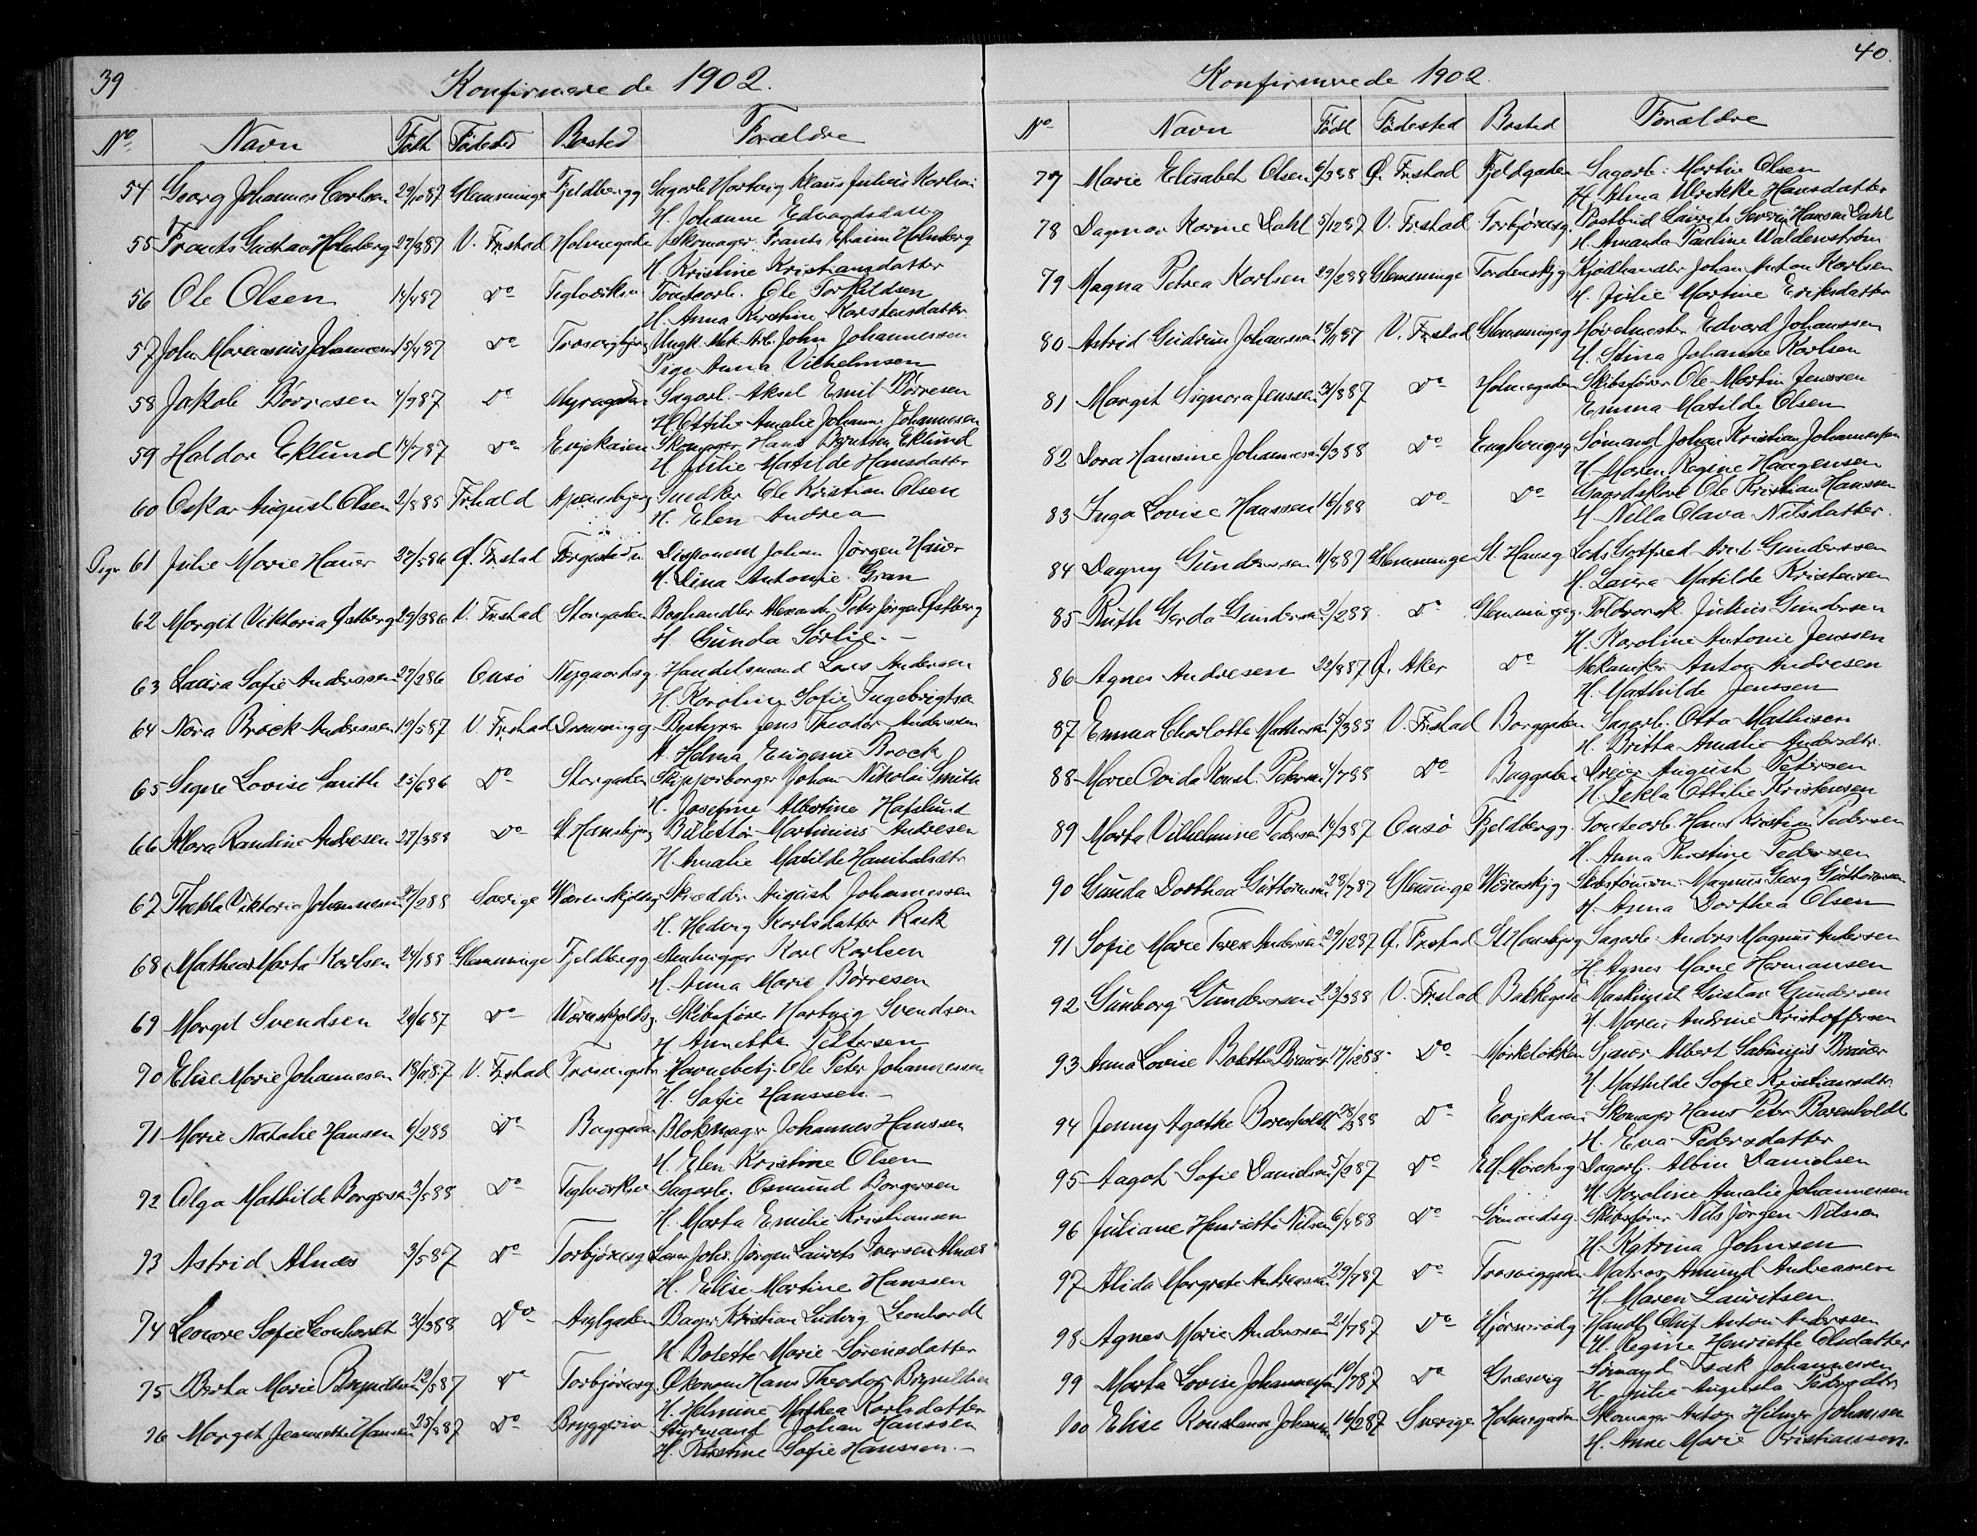 39
Konfirmerede 1902.
No Navn Født Fødested Bosted Forældre
54 Georg Johannes Carlsen 29/10 87 Glemminge Fjeldbergg Sagarb. Hartvig Klaus Julius Karlsen
H. Johanne Edvardsdatter
55 Frants Gustav Holmberg 27/8 87 V. Fr.stad Holmegade Skomager Frants Efraim Holmberg
H. Kristine Kristiansdatter
56 Ole Olsen 14/4 87 Do Teglverksv Tomtearb. Ole Torkildsen
H. Anna Kirstine Karstensdatter
57 John Johannesen 15/4 87 Do Ungk. Mek. Arb. John Johannessen
Pige Anna Vilhelmsen
58 Jakob Børresen 4/7 87 Do Myragaden Sagarb. Aksel Emil Børresen
H. Ottilie Amalie Johanne Johannesen
59 Haldor Eklund 14/7 87 Do Evjekaien Skomager Hans Eklund
H. Julie Matilde Hansdatter
60 Oskar August Olsen 2/8 85 Fr.hald Snedker Ole Kristian Olsen
H. Elen Andrea
Pigr 61 Julie Marie Hauer 27/5 86 Ø. Fr.stad Disponent Johan Jørgen Hauer
H. Lina Antonie Gran
62 Margit Viktoria Østberg 29/3 86 V. Fr.stad Storgaden Boghandler Alexander Peter Jørgen Østberg
H. Gunda Sørlie. –
63 Laura Sofie Anderssen 27/2 86 Onsø Nygaardsg Handelsmand Lars Andersen
H. Karoline Sofie Ingebrigtsen
64 Nora Brock Anderssen 19/5 87 V. Fr.stad Dronningg Bestyrer Jens Theodor Andersen
H. Helma Eugenie Brock
65 Signe Lovise Smith 25/6 86 Do Storgaden Skipperborger Johan Nikolai Smith
H. Josefine Albertine Hafslund
66 Alvara Randine Andresen 27/3 88 Do St. Hansbjerg Billettør Martinius Andresen
H. Amalie Matilde Hanibalsdtr
67 Thekla Viktoria Johannesen 27/2 88 Sverige Værenskjoldsg Skrædder August Johannessen
H. Hedvig Karlsdatter Rask
68 Mathea Marta Karlsen 24/1 88 Glemminge Fjeldbergg Stenhugger Karl Karlsen
H. Anna Marie Børresen
69 Margit Svendsen 20/6 87 Do Værenskjoldsg. Skibsfører Hartvig Svendsen
H. Annette Pettersen
70 Elise Marie Johannesen 18/11 87 V. Fr.stad Havnebetj. Ole Peter Johannessen
H. Sofie Hanssen. –
71 Marie Natalie Hansen 6/2 88 Do Baggaden Blokmager Johannes Hanssen
H. Elen Kristine Olsen
72 Olga Mathilde Borgersen 3/5 88 Do Teglverksv Sagarb. Osmund Borgersen
H. Marta Emilie Kristiansen
73 Astrid Alnæs 3/5 87 Do Torbjørnsg Johs. Jørgen Laurets Iversen Alnæs
H. Elise Martine Hanssen
74 Leonore Sofie Leonhardt 31/3 88 Do Asylgaden Bager Kristian Ludvig Leonhardt
H. Bolette Marie Sørensdatter
75 Berta Marie Brynildsen 12/5 87 Do Torbjørnsg Økonom Hans Theodor Brynildsen
H. Helmine Mathea Karlsdatter
76 Margit Jeannette Hansen 25/8 87 Do Bryggeriv Styrmand Johan Hanssen
H. Kirstine Sofie Hanssen. –
40.
Konfirmerede 1902.
No Navn Født Fødested Bosted Forældre
77 Marie Elisabet Olsen 6/3 88 Ø. Fr.stad Fjeldgaden Sagarb. Martin Olsen
H. Alma Ulrikke Hansdatter
78 Dagmar Karine Dahl 5/12 87 V. Fr.stad Torbjørnsg. Postbud Laurits Severin Hansen Dahl
H. Amanda Pauline Waldenstrøm
79 Magna Petrea Karlsen 29/2 88 Glemminge Tordenskjg Kjødhandler Johan Anton Karlsen
H. Julie Martine Eriksdatter
80 Astrid Gudrun Johanssen 18/9 87 V. Fr.stad Glemmingeg Edvard Johanssen
H. Stina Johanne Karlsen
81 Margit Signora Jenssen 31/8 87 Do Holmegaden Skibsfører Ole Martin Jenssen
Emma Matilde Olsen
82 Dora Hansine Johannesen 6/3 88 Do Sømand Johan Kristian Johannessen
H. Maren Regine Haagensen
83 Inga Lovise Hanssen 16/1 88 Do Do Gaardskarl Ole Kristian Hanssen
H. Nilla Olava Nilsdatter.
84 Dagny Gunderssen 11/8 87 Glemminge St. Hansg Lods Gotfred Gunderssen
H. Laura Matilde Kristensen
85 Ruth Gerda Gundersen 2/2 88. Do Glemmingeg. Toldroersk. Julius Gundersen
H. Karoline Antonie Jenssen
86 Agnes Andresen 22/8 87 Ø. Aker Do Mekaniker Anton Andresen
H. Mathilde Jenssen
87 Emma Charlotte Mathisen 15/3 88 V. Fr.stad Borggaden Sagarb. Otto Mathisen
H. Britta Amalie Andersdtr.
88 Marie Ovida Konst. Petersen 4/7 88 Do Baggaden Dreier August Petersen
H. Tekla Ottilie Kristensen
89 Marta Vilhelmine Pedersen 14/3 87 Onsø Fjeldbergg. Tomtearb. Hans Kristian Pedersen
H. Anna Kirstine Pedersen
90 Gunda Dorthea Guttormsen 28/7 87 Glemminge Værenskjg Magnus Georg Guttormsen
H. Anna Dorthea Olsen
91 Sofie Marie Andersen 29/12 87 Ø. Fr.stad St. Hansbjerg Sagarb. Anders Magnus Andersen
H. Agnes Marie Hermansen
92 Gunborg Gunderssen 23/3 88 V. Fr.stad Bakkegaden Maskinist Gustav Gundersen
H. Maren Andrine Kristoffersen
93 Anna Lovise Bolette Brauer 17/12 88 Do Mørkeløkken Albert Brauer
H. Mathilde Sofie Kristiansdtr
94 Jenny Agathe Borenholdt 28/3 88 Do Evjekaien Skomager Hans Peter Borenholdt
H. Eva Pedersdatter
95 Aagot Sofie Danielsen 5/9 87 Do Dagarb. Albin Danielsen
H. Karoline Amalie Johannessen
96 Juliane Henriette Nilsen 6/4 88 Do Sømandsg. Skibsfører Nils Jørgen Nilsen
H. Katrina Johnsen
97 Alida Margrete Andreassen 29/7 87 Do Trosviggaden Matros Amund Andreassen
H. Maren Lauritsen.
98 Agnes Marie Anderssen 21/7 87 Do Handl. Oluf Anton Anderssen
H. Regine Henriette Olsdatter
99 Marta Lovise Johannessen 19/7 87 Do Græsvig Sømand Isak Johannessen
H. Julie Pedersdtr
100 Elise Konstance Johansen 14/2 87 Sverige Holmegaden Skomager Anton Hilmer Johansen
H. Anne Marie Kristiansen.